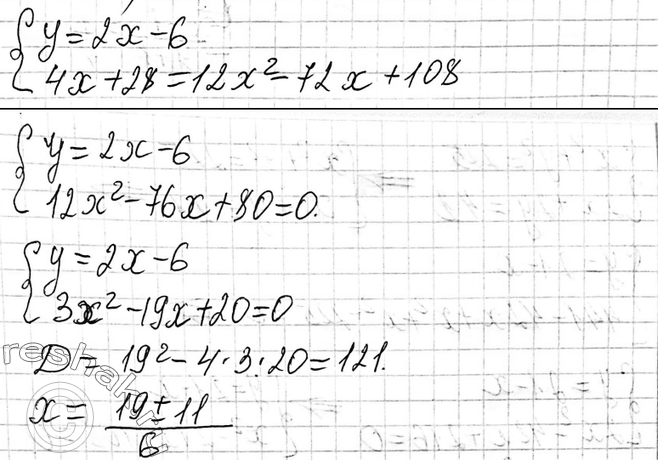 { y = 2x - 6
{ 4x + 28 = 12x² - 72x + 108
{ y = 2x - 6
{ 12x² - 76x + 80 = 0.
{ y = 2x - 6
{ 3x² - 19x + 20 = 0
D = 19² - 4·3·20 = 121.
x = (19 ± 11) / 6
reshak.ru